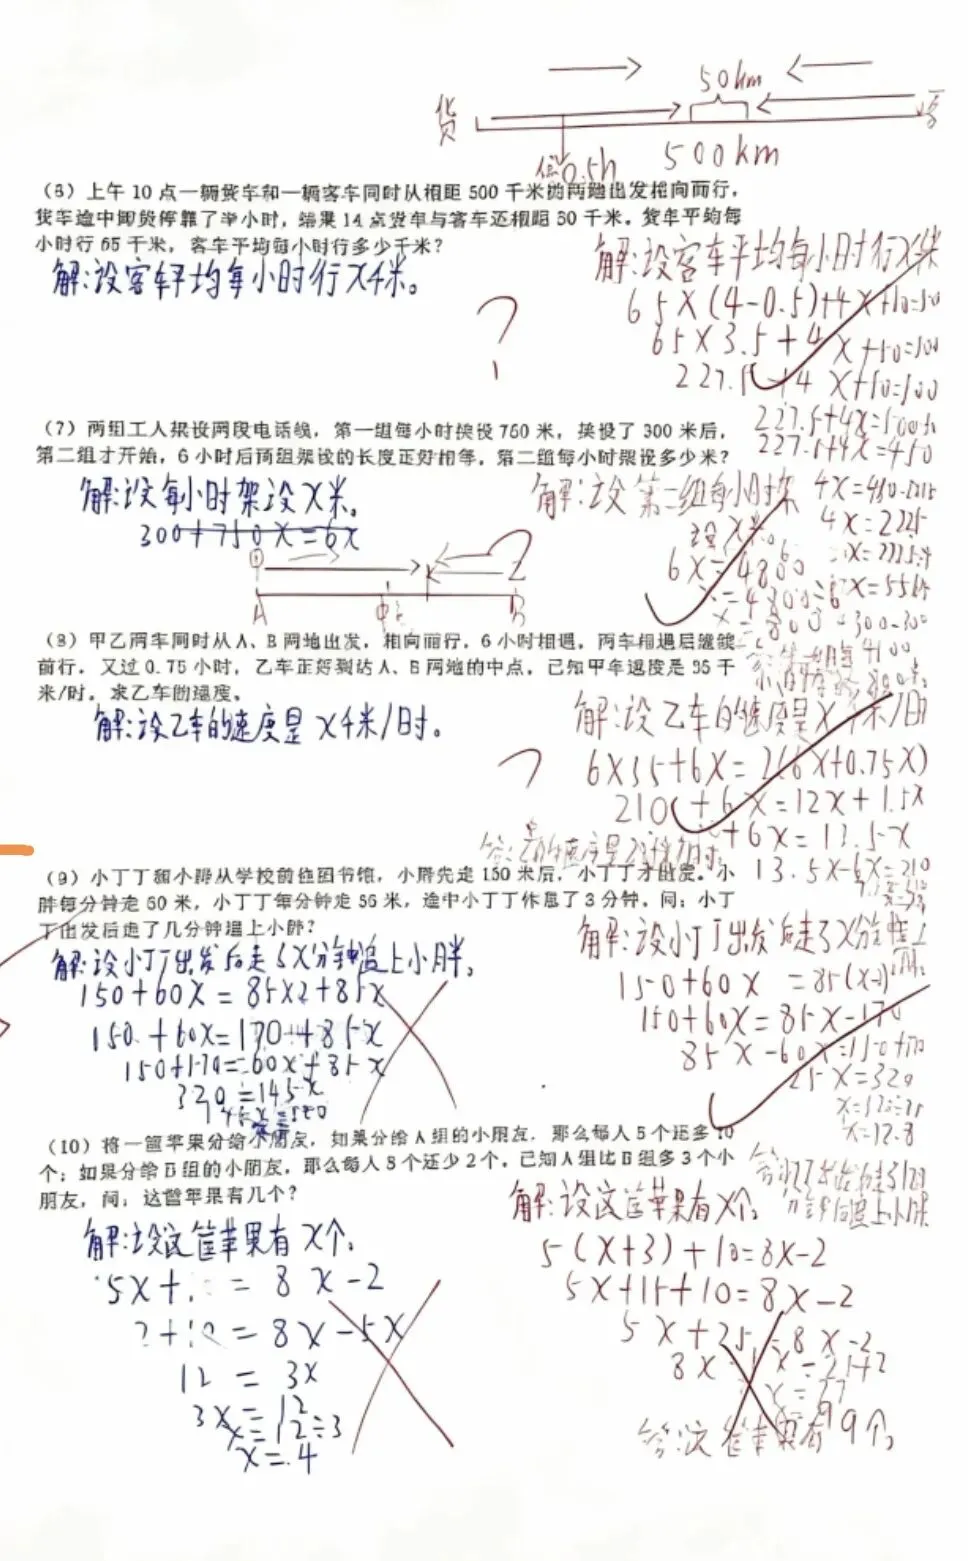 50km
货
客
停0.5h
500km
(6) 上午 10 点一辆货车和一辆客车同时从相距 500 千米的两地出发相向而行，
货车途中卸货停靠了半小时，结果 14 点货车与客车还相距 50 千米。货车平均每
小时行 65 千米，客车平均每小时行多少千米？
解:设客车平均每小时行X千米。
?
解:设客车平均每小时行X千米
65×(4-0.5)+4x+50=500
65×3.5+4x+50=500
227.5+4x+50=500
227.5+4x=500-50
227.5+4x=450
4x=450-227.5
4x=222.5
(7) 两组工人架设两段电话线，第一组每小时架设 750 米，架设了 300 米后，
第二组才开始，6 小时后两组架设的长度正好相等。第二组每小时架设多少米？
解:设每小时架设X米。
300+750x=6x
解:设第二组每小时架
设X米。
6x=4800
x=4800÷6
x=800
甲
乙
A
中点
B
(8) 甲乙两车同时从 A、B 两地出发，相向而行，6 小时相遇，两车相遇后继续
前行，又过 0.75 小时，乙车正好到达 A、B 两地的中点，已知甲车速度是 35 千
米/时。求乙车的速度。
解:设乙车的速度是 X千米/时。
?
解:设乙车的速度是X千米/时
6×35+6x=2(6x+0.75x)
210+6x=12x+1.5x
+6x=13.5x
13.5x-6x=210
(9) 小丁丁和小胖从学校前往图书馆，小胖先走 150 米后，小丁丁才出发。小
胖每分钟走 60 米，小丁丁每分钟走 85 米，途中小丁丁休息了 2 分钟。问：小丁
丁出发后走了几分钟追上小胖？
解:设小丁丁出发后走了X分钟追上小胖。
150+60x=85×2+85x
150+60x=170+85x
150+170=60x+85x
320=145x
解:设小丁丁出发后走了X分钟追上
150+60x =85(x-2)
150+60x=85x-170
85x-60x=150+170
25x=320
x=320÷25
x=12.8
(10) 将一筐苹果分给小朋友，如果分给 A 组的小朋友，那么每人 5 个还多 10
个；如果分给 B 组的小朋友，那么每人 8 个还少 2 个。已知 A 组比 B 组多 3 个小
朋友，问：这筐苹果有几个？
解:设这筐苹果有 X个。
5x+10=8x-2
2+10=8x-5x
12=3x
3x=12
x=12÷3
x=4
解:设这筐苹果有X个。
5(x+3)+10=8x-2
5x+15+10=8x-2
5x+25=8x-2
答:这筐苹果有99个。